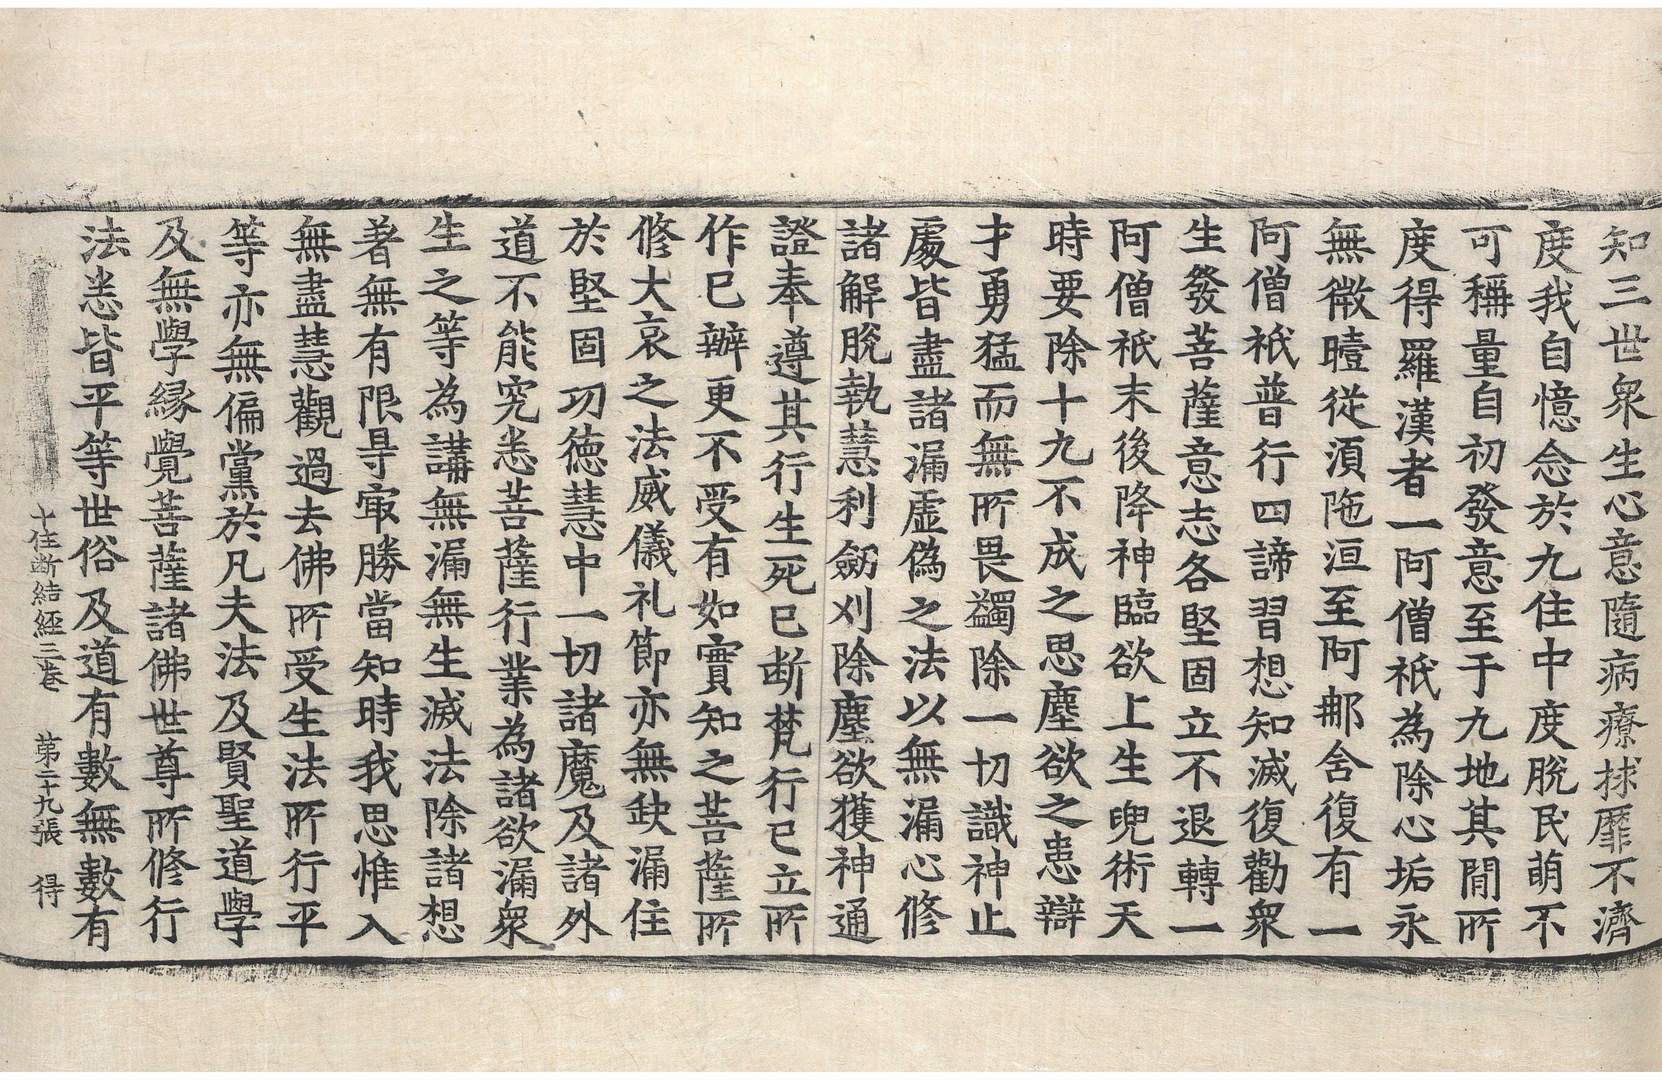 知三世衆生心意隨病療救靡不濟
度我自憶念於九住中度脫民萌不
可稱量自初發意至于九地其閒所
度得羅漢者一阿僧祇為除心垢永
無微曀從湏陁洹至阿那含復有一
阿僧祇普行四諦習想知滅復勸衆
生發菩薩意志各堅固立不退轉一
阿僧祇末後降神臨欲上生兜術天
時要除十九不成之思塵欲之患辯
才勇猛而無所畏蠲除一切識神止
處皆盡諸漏虛偽之法以無漏心修
諸解脫執慧利劒刈除塵欲獲神通
證奉遵其行生死已断梵行已立所
作已辦更不受有如實知之菩薩所
修大哀之法威儀礼節亦無缺漏住
於堅固功德慧中一切諸魔及諸外
道不能究悉菩薩行業為諸欲漏衆
生之等為講無漏無生滅法除諸想
著無有限㝵㝡勝當知時我思惟入
無盡慧觀過去佛所受生法所行平
等亦無偏黨於凡夫法及賢聖道學
及無學縁覺菩薩諸佛世尊所修行
法悉皆平等世俗及道有數無數有
十住断結經三卷　第二十九張　得